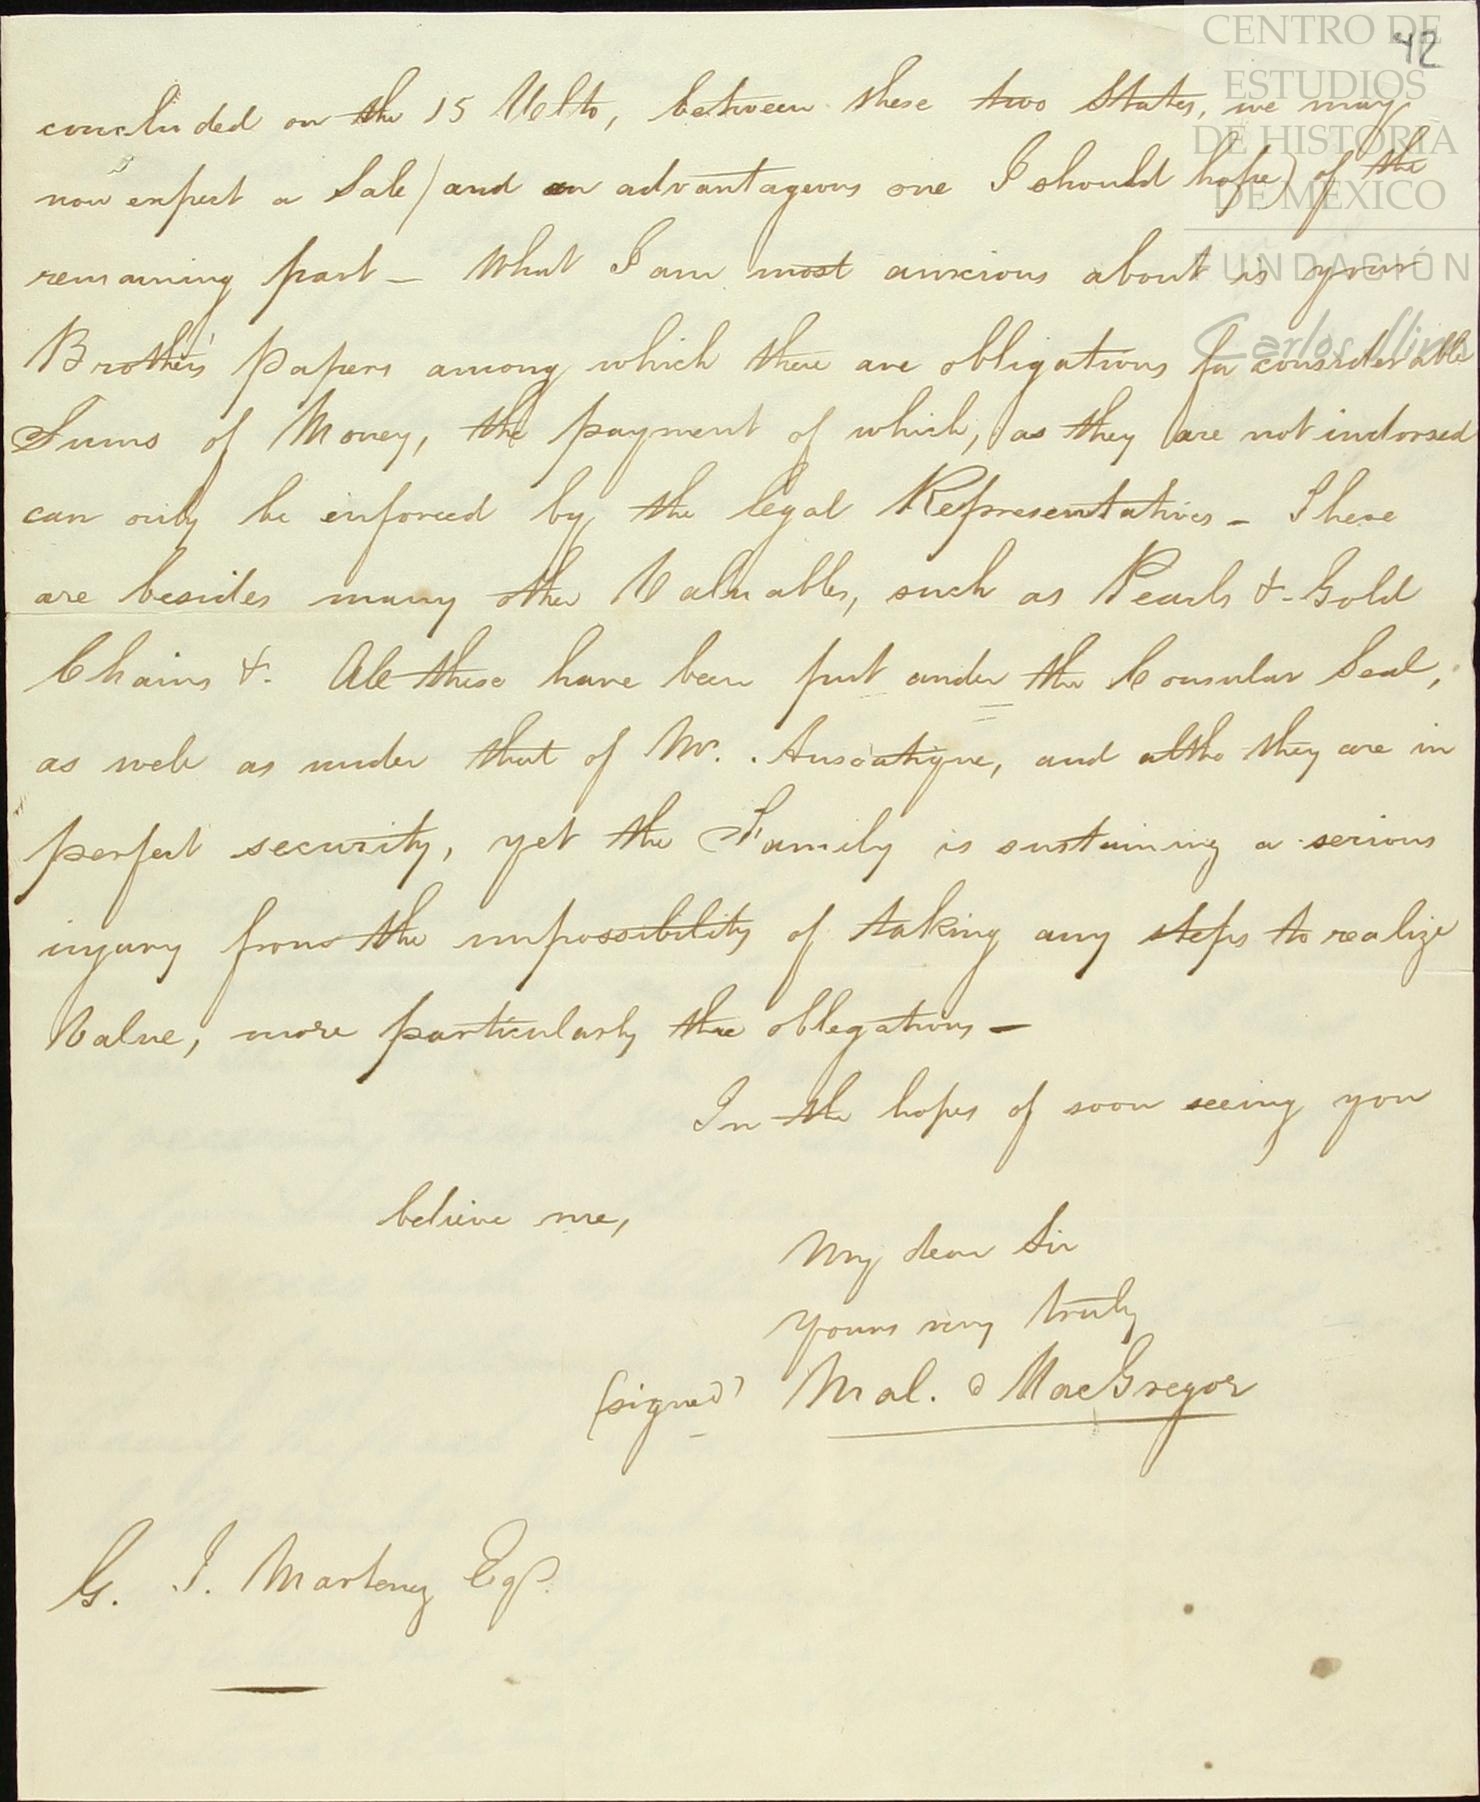 42
CENTRO DE
ESTUDIOS
DE HISTORIA
DE MEXICO
FUNDACIÓN
Carlos Slim
concluded on the 15 Ulto, between these two States, we may
now expect a Sale (and an advantageous one I should hope) of the
remaining part – What I am most anxious about is your
Brother's Papers among which there are obligations for considerable
Sums of Money, the payment of which, as they are not indorsed
can only be enforced by the legal Representatives – There
are besides many other Valuables, such as Pearls & Gold
Chains &. All these have been put under the Consular Seal,
as well as under that of Mr. , and altho they are in
perfect security, yet the Family is sustaining a serious
injury from the impossibility of taking any steps to realize
Value, more particularly the obligations –
In the hopes of soon seeing you
believe me,
My dear Sir
yours very truly
(signed) Mal. MacGregor
G. I. Esq.